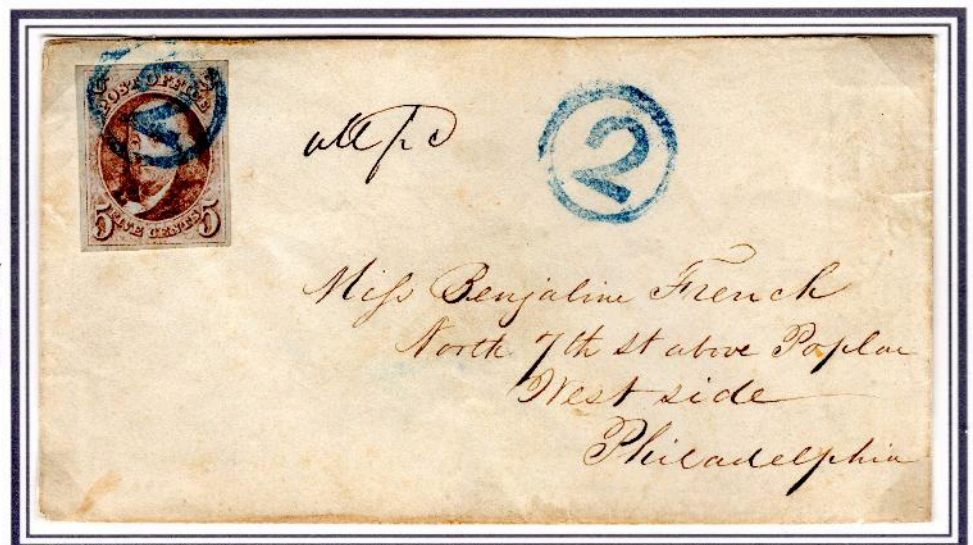 POST OFFICE
5 FIVE CENTS 5
5
2
Miss Benjaline French
North 7th st above Poplar
West side
Philadelphia